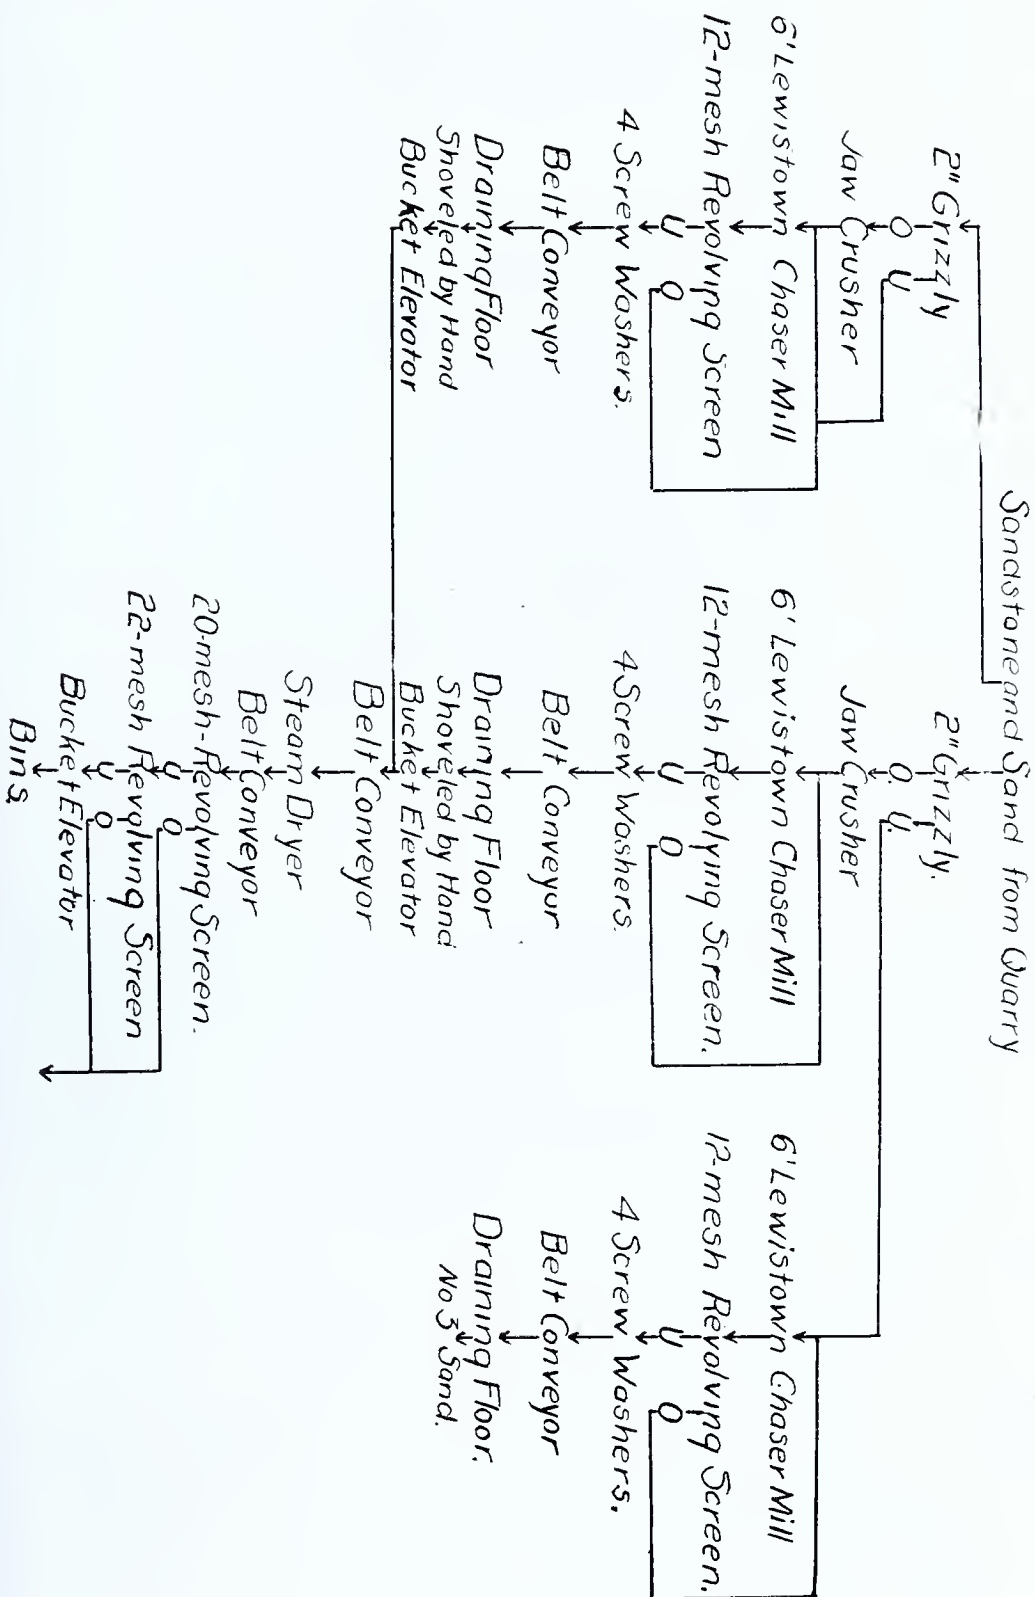 Sandstone and Sand from Quarry
2" Grizzly
O U
Jaw Crusher
6' Lewistown Chaser Mill
12-mesh Revolving Screen
U O
4 Screw Washers.
Belt Conveyor
Draining Floor
Shoveled by Hand
Bucket Elevator
2" Grizzly.
O. U.
Jaw Crusher
6' Lewistown Chaser Mill
12-mesh Revolving Screen.
U O
4 Screw Washers.
Belt Conveyor
Draining Floor
Shoveled by Hand
Bucket Elevator
Belt Conveyor
Steam Dryer
Belt Conveyor
20-mesh-Revolving Screen.
U O
22-mesh Revolving Screen
U O
Bucket Elevator
Bins.
6' Lewistown Chaser Mill
12-mesh Revolving Screen.
U O
4 Screw Washers.
Belt Conveyor
Draining Floor.
No 3 Sand.